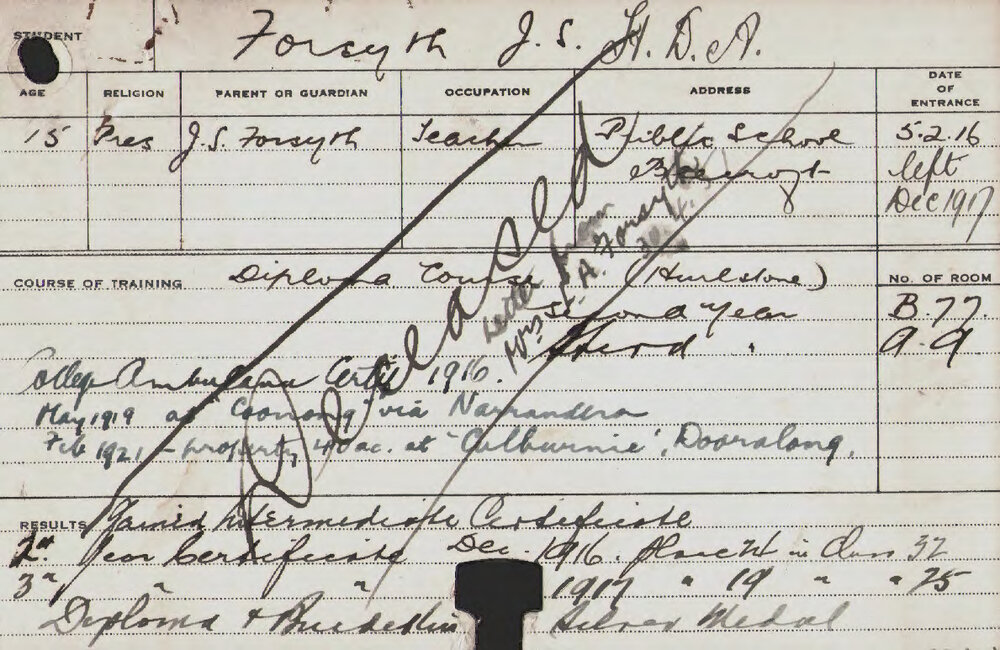 STUDENT Forsyth J. S. H. D. A.
AGE RELIGION PARENT OR GUARDIAN OCCUPATION ADDRESS DATE OF ENTRANCE
15 Pres J. S. Forsyth Teacher Public School 5.2.16
Beecroft left
Dec 1917
Deceased
Letter from
Mrs. A. Forsyth
COURSE OF TRAINING Diploma Course (Hurlstone) No. OF ROOM
Second Year B.77.
Third " a.9.
College Ambulance Certif. 1916.
May 1919 at "Coonong" via Narrandera
Feb 1921 - property 40 ac. at 'Culburnie', Dooralong.
RESULTS Gained Intermediate Certificate
2nd Year Certificate Dec. 1916. Place 24 in Class 32
3" " " 1917 " 19 " " 25
Diploma & Burdekin Silver Medal